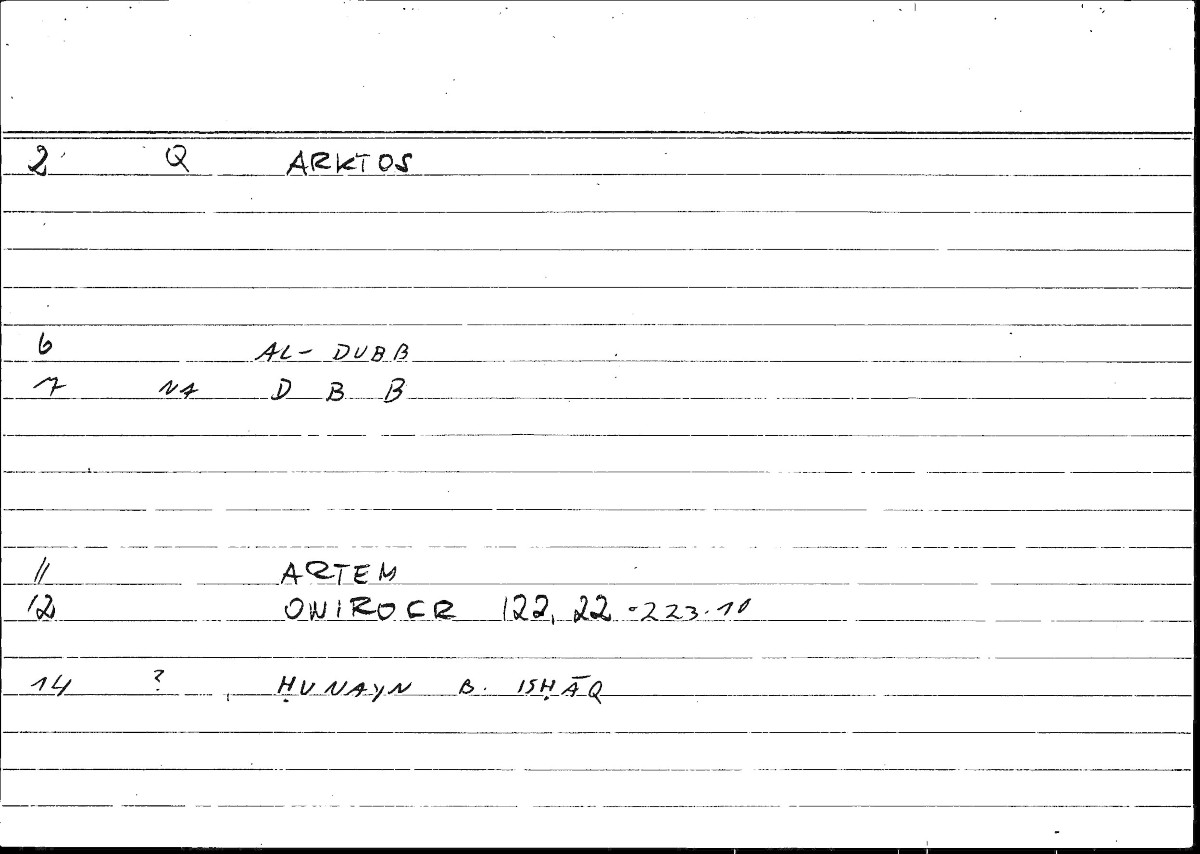 2 Q ARKTOS
6 AL- DUBB
7 NA D B B
11 ARTEM
12 ONIROCR 122, 22 - 223.10
14 ? ḤUNAYN B. ISḤĀQ